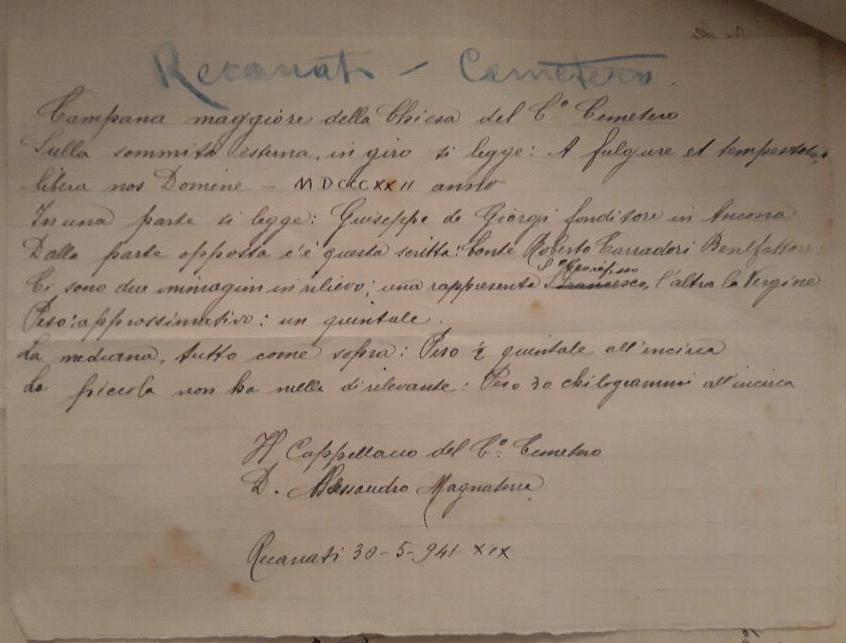 Recanati - Cemetero
Campana maggiore della Chiesa del C.° Cemetero
Sulla sommità esterna, in giro si legge: A fulgure et tempestate,
libera nos Domine - MDCCCXXII anno
In una parte si legge: Giuseppe de Giorgi fonditore in Ancona
Dalla parte opposta c'è questa scritta: Conte Roberto Carradori Benefattore.
S.° Crocifisso
Ci sono due immagini in rilievo; una rappresenta S. Francesco, l'altra la Vergine
Peso: approssimativo: un quintale.
La mediana, tutto come sopra: Peso ½ quintale all'incirca
La piccola non ha nulla di rilevante: Peso 30 chilogrammi all'incirca
Il Cappellano del C.° Cemetero
D. Alessandro Magnaterra
Recanati 30-5-941-XIX